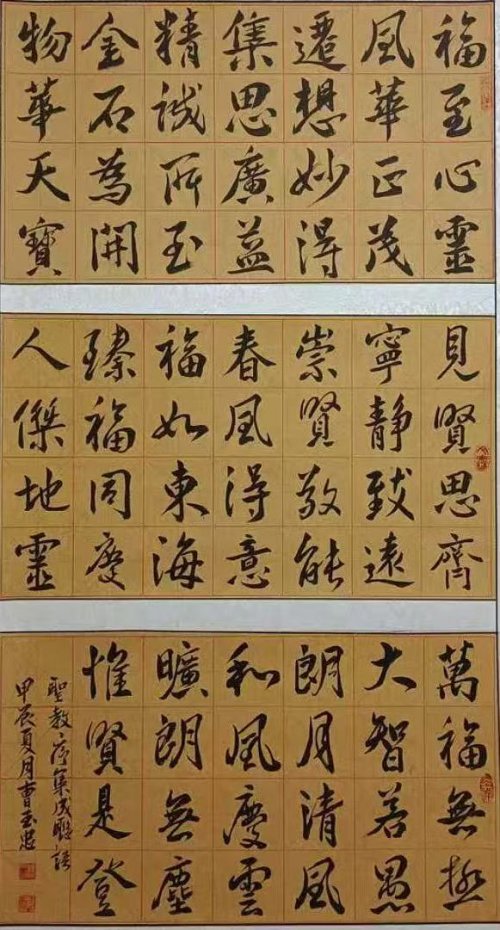 福至心靈
風華正茂
遷想妙得
集思廣益
精誠所至
金石為開
物華天寶
見賢思齊
寧靜致遠
崇賢敬能
春風得意
福如東海
臻福同慶
人傑地靈
萬福無極
大智若愚
朗月清風
和風慶雲
曠朗無塵
惟賢是登
聖教序集成聯語
甲辰夏月曹玉忠